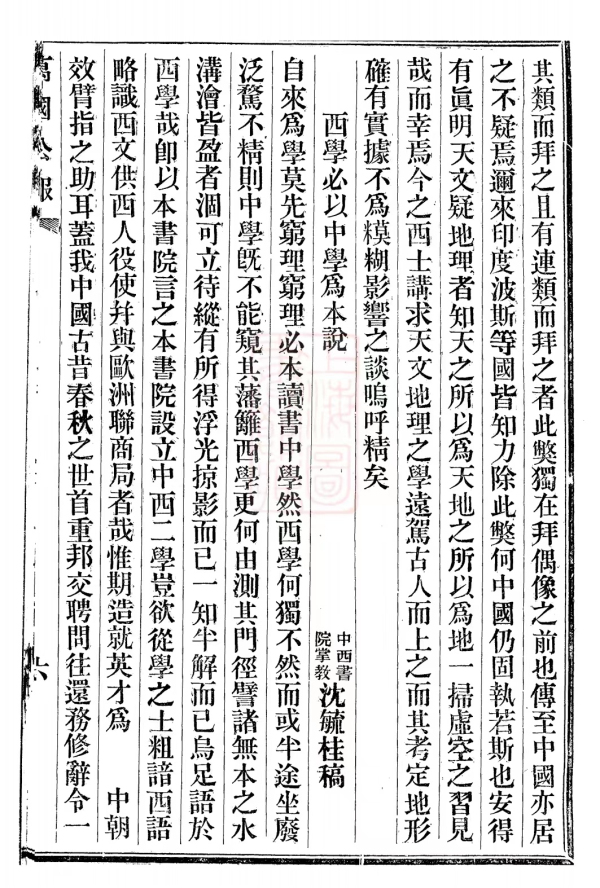 其類而拜之且有連類而拜之者此獘獨在拜偶像之前也傳至中國亦居
之不疑焉邇來印度波斯等國皆知力除此獘何中國仍固執若斯也安得
有眞明天文疑地理者知天之所以爲天地之所以爲地一掃虛空之習見
哉而幸焉今之西士講求天文地理之學遠駕古人而上之而其考定地形
確有實據不爲糢糊影響之談嗚呼精矣
西學必以中學爲本說
中西書院掌教沈毓桂稿
自來爲學莫先窮理窮理必本讀書中學然西學何獨不然而或半途坐廢
泛騖不精則中學旣不能窺其藩籬西學更何由測其門徑譬諸無本之水
溝澮皆盈者涸可立待縱有所得浮光掠影而已一知半解而已烏足語於
西學哉卽以本書院言之本書院設立中西二學豈欲從學之士粗諳西語
略識西文供西人役使幷與歐洲聯商局者哉惟期造就英才爲　中朝
效臂指之助耳蓋我中國古昔春秋之世首重邦交聘問往還務修辭令一
萬國公報
六